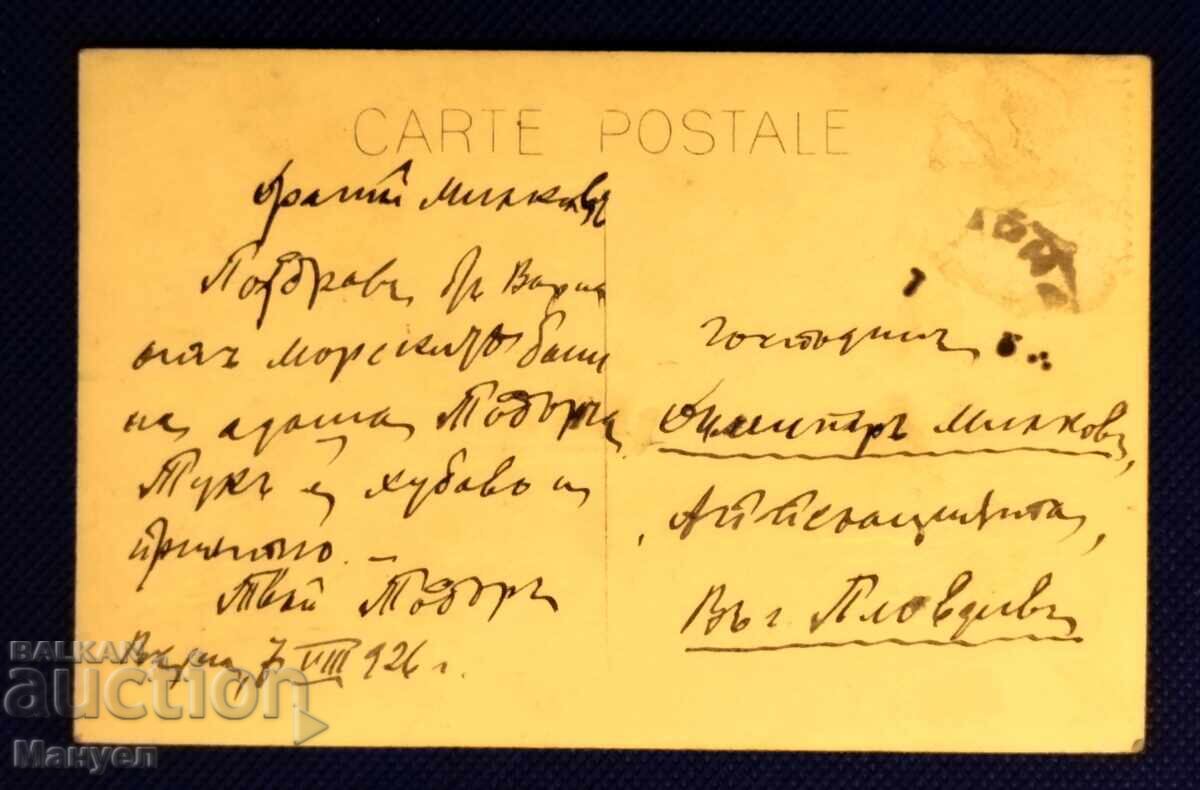 CARTE POSTALE
Драгий Минковъ
Поздравъ отъ Варна
морскитѣ бани
на адаша Тодоръ
Тукъ е хубаво и
приятно. –
Твой Тодоръ
Варна, 7 VIII 926 г.
Господинъ
Димитъръ Минковъ,
Въ г. Пловдивъ
BALKAN
auction
Мануел